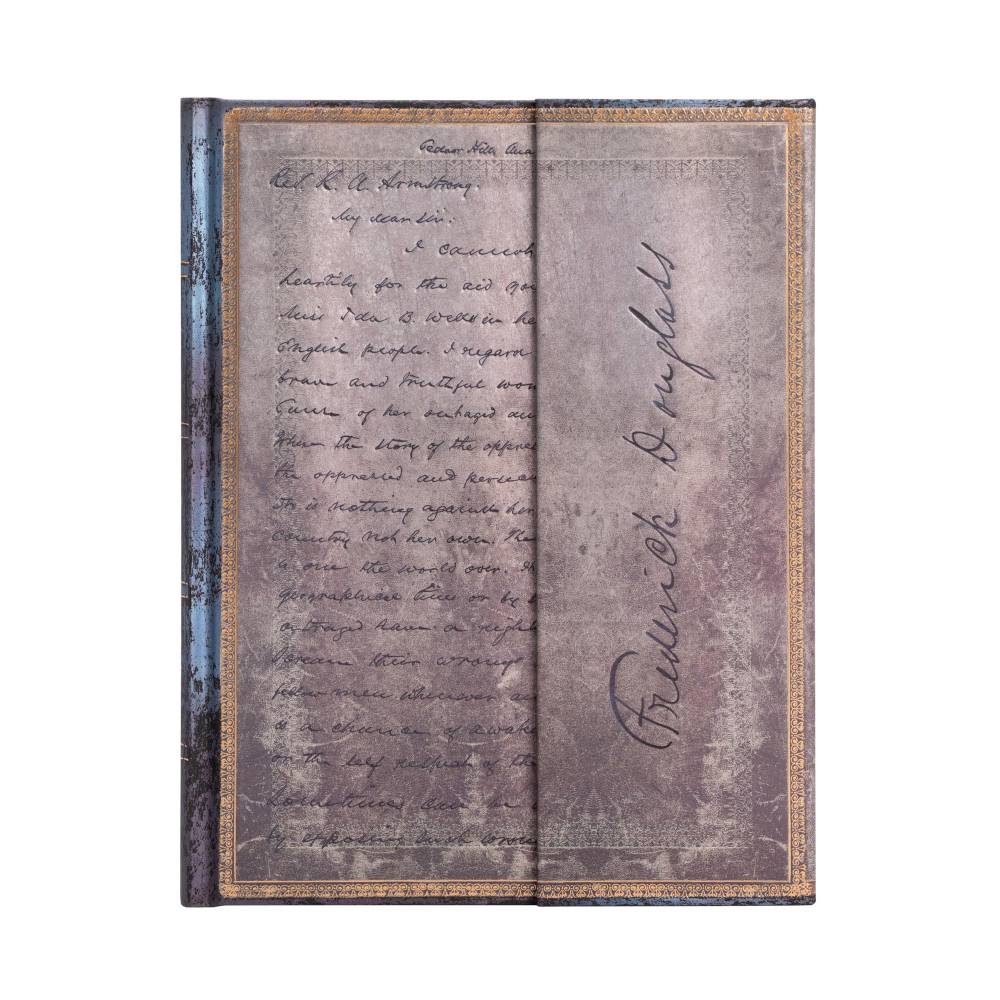 Cedar Hill, Ana
Rev. R. A. Armstrong.
My dear Sir:
I cannot
heartily for the aid you
Miss Ida B. Wells in he
English people. I regard
brave and truthful wom
Cause of her outraged an
When the story of the oppre
the oppressed and persec
It is nothing against her
country not her own. The
is one the world over. It
geographical lines or by
outraged have a right
scream their wrongs
fellow men wherever an
is a chance of awake
or the self respect of the
Sometimes can be
by opposing such wron
Frederick Douglass